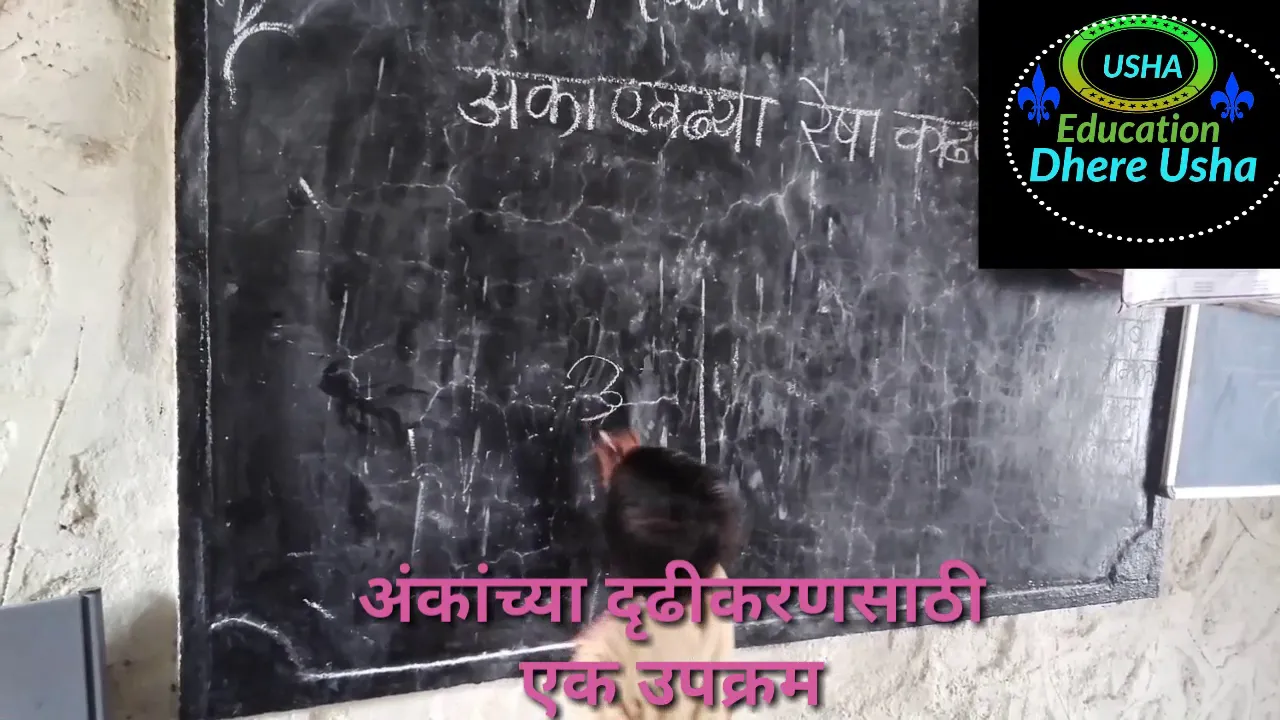 अंका एवढ्या रेषा काढ
USHA
Education
Dhere Usha
3
अंकांच्या दृढीकरणसाठी
एक उपक्रम